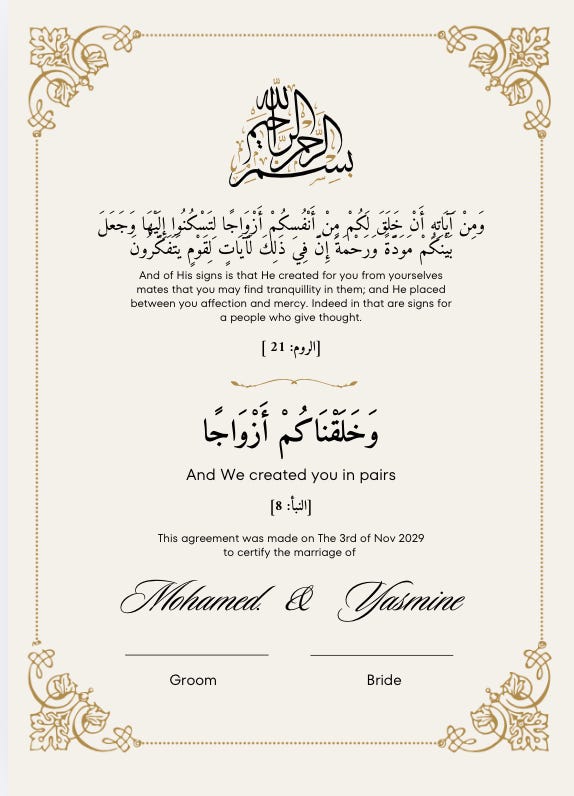 بسم الله الرحمن الرحيم
وَمِنْ آيَاتِهِ أَنْ خَلَقَ لَكُم مِنْ أَنْفُسِكُمْ أَزْوَاجًا لِتَسْكُنُوا إِلَيْهَا وَجَعَلَ
بَيْنَكُمْ مَوَدَّةً وَرَحْمَةً إِنَّ فِي ذَلِكَ لَآيَاتٍ لِقَوْمٍ يَتَفَكَّرُونَ
And of His signs is that He created for you from yourselves
mates that you may find tranquillity in them; and He placed
between you affection and mercy. Indeed in that are signs for
a people who give thought.
[الروم: 21 ]
وَخَلَقْنَاكُمْ أَزْوَاجًا
And We created you in pairs
[النبأ: 8]
This agreement was made on The 3rd of Nov 2029
to certify the marriage of
Mohamed. & Yasmine
Groom Bride